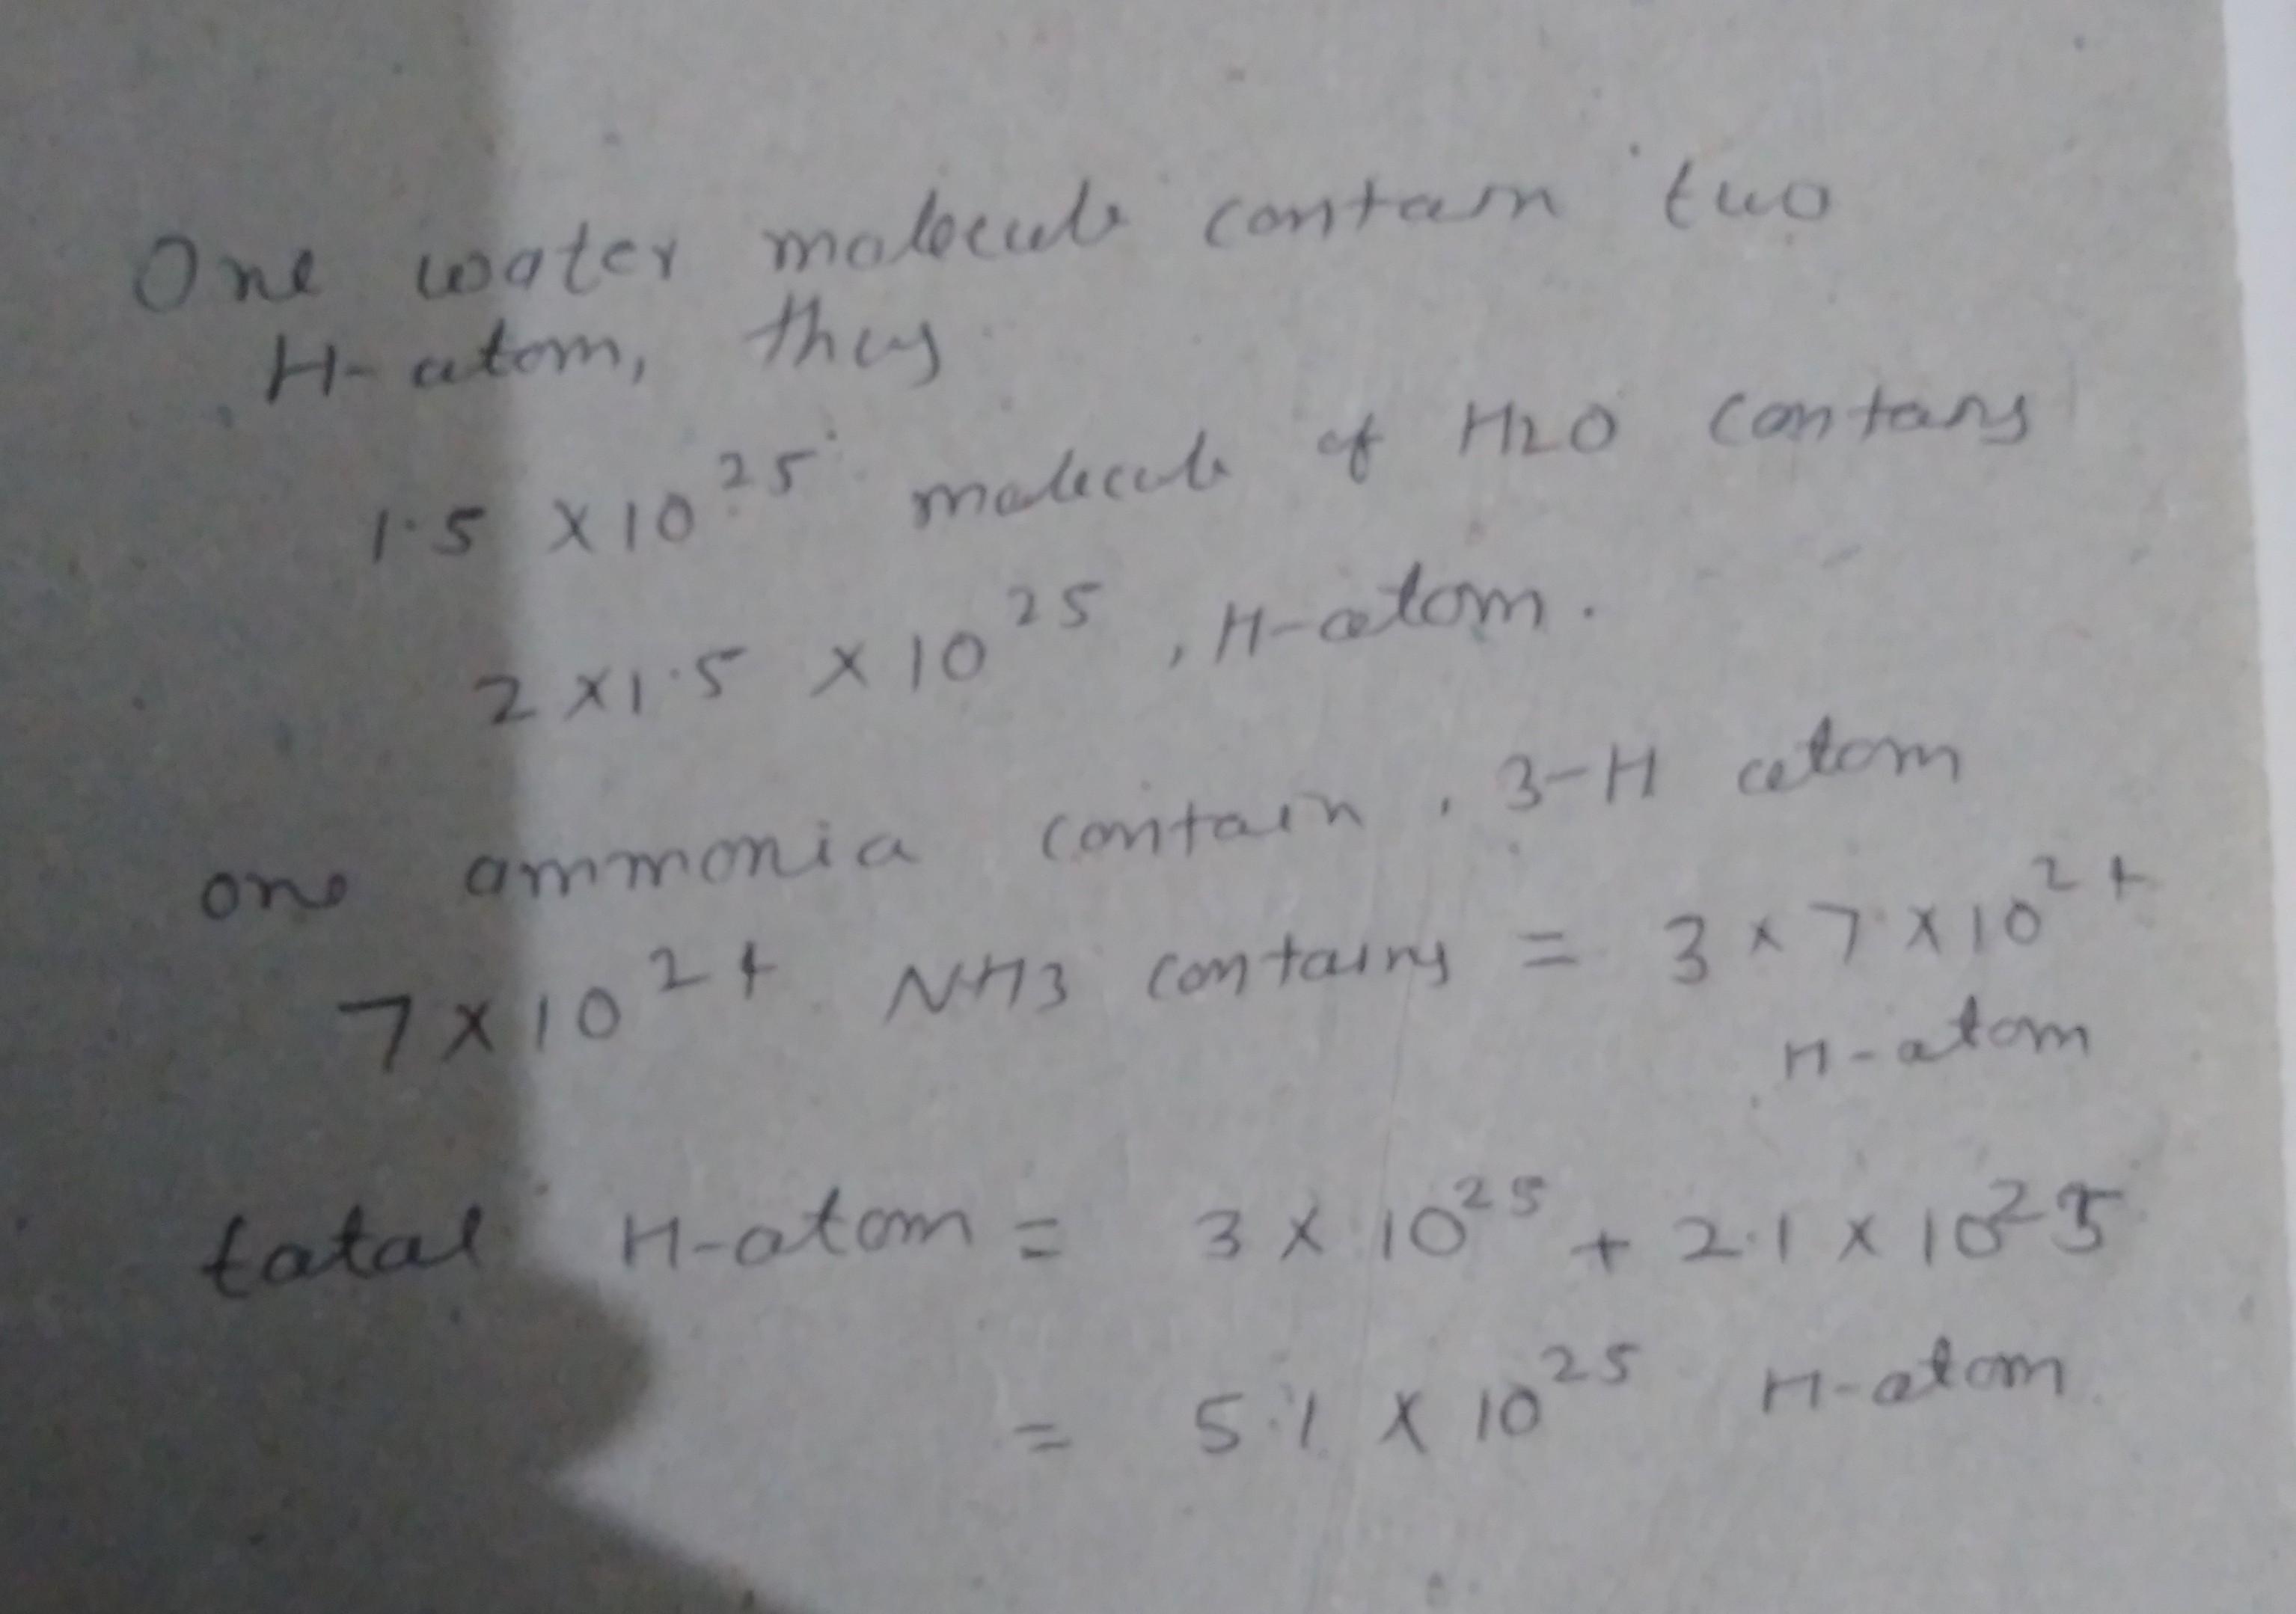 One water molecule contain two
H-atom, thus
1.5 × 10²⁵ molecule of H2O contans
2 × 1.5 × 10²⁵, H-atom.
one ammonia contain. 3-H atom
7 × 10²⁴ NH3 contains = 3 × 7 × 10²⁴
H-atom
total H-atom = 3 × 10²⁵ + 2.1 × 10²⁵
= 5.1 × 10²⁵ H-atom